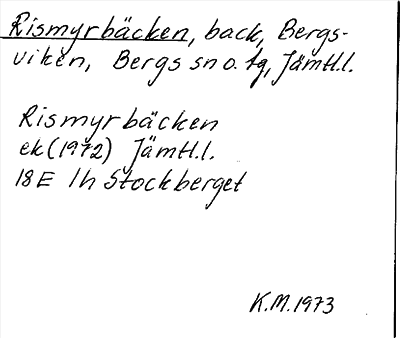 Rismyrbäcken, back, Bergs-
viken, Bergs sn o. tg, Jämtl.l.
Rismyrbäcken
ek (1972) Jämtl.l.
18 E 1h Stockberget
K.M. 1973